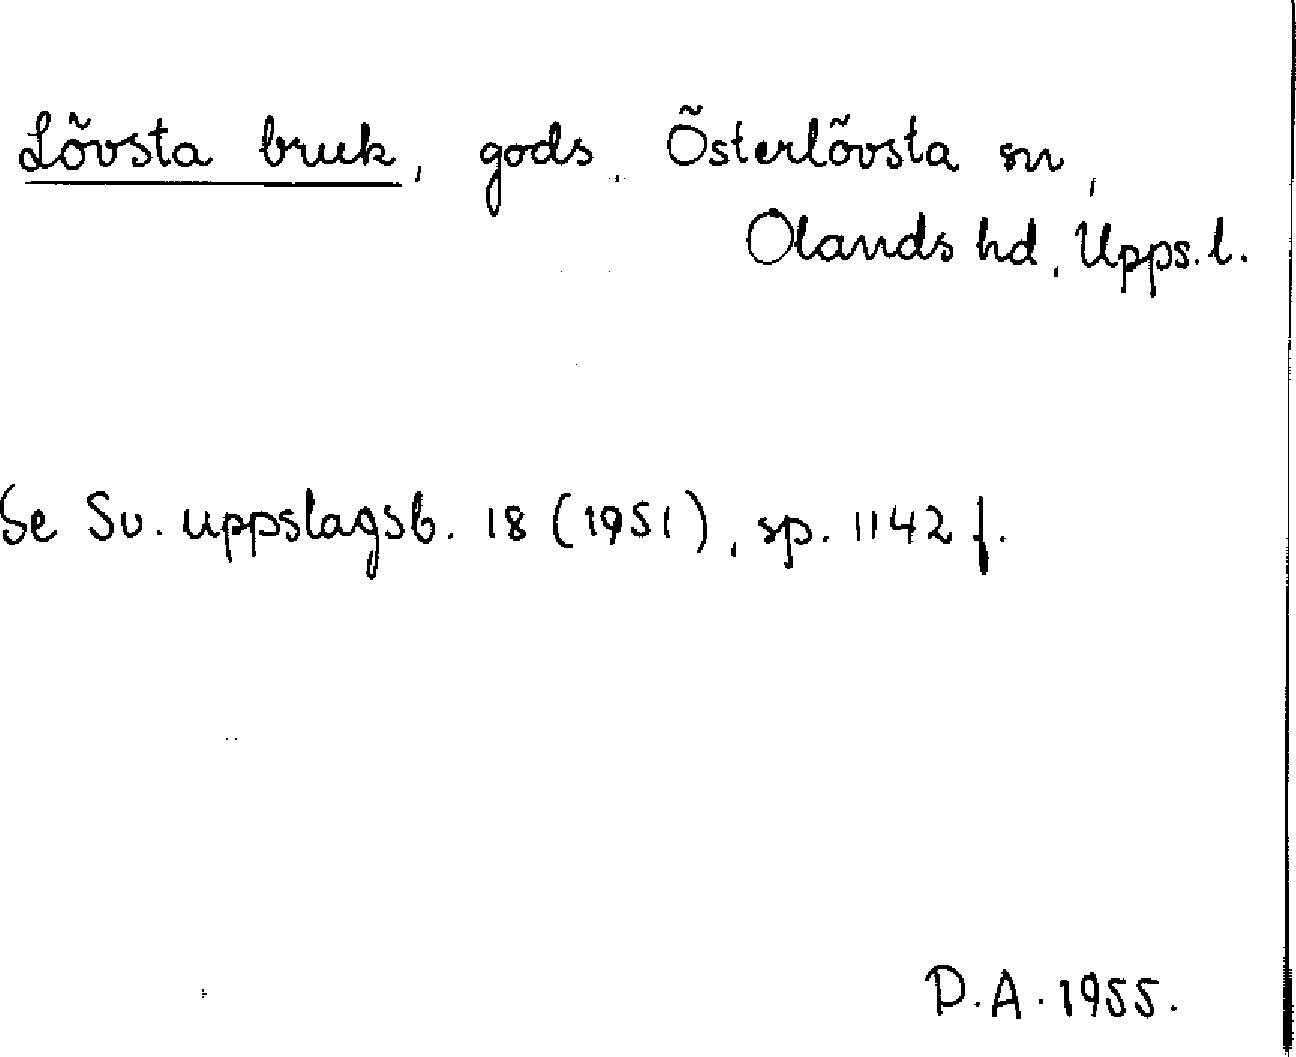 Lövsta bruk, gods, Österlövsta sn,
Olands hd, Upps. l.
Se Sv. uppslagsb. 18 (1951), sp. 1142 f.
D.A. 1955.